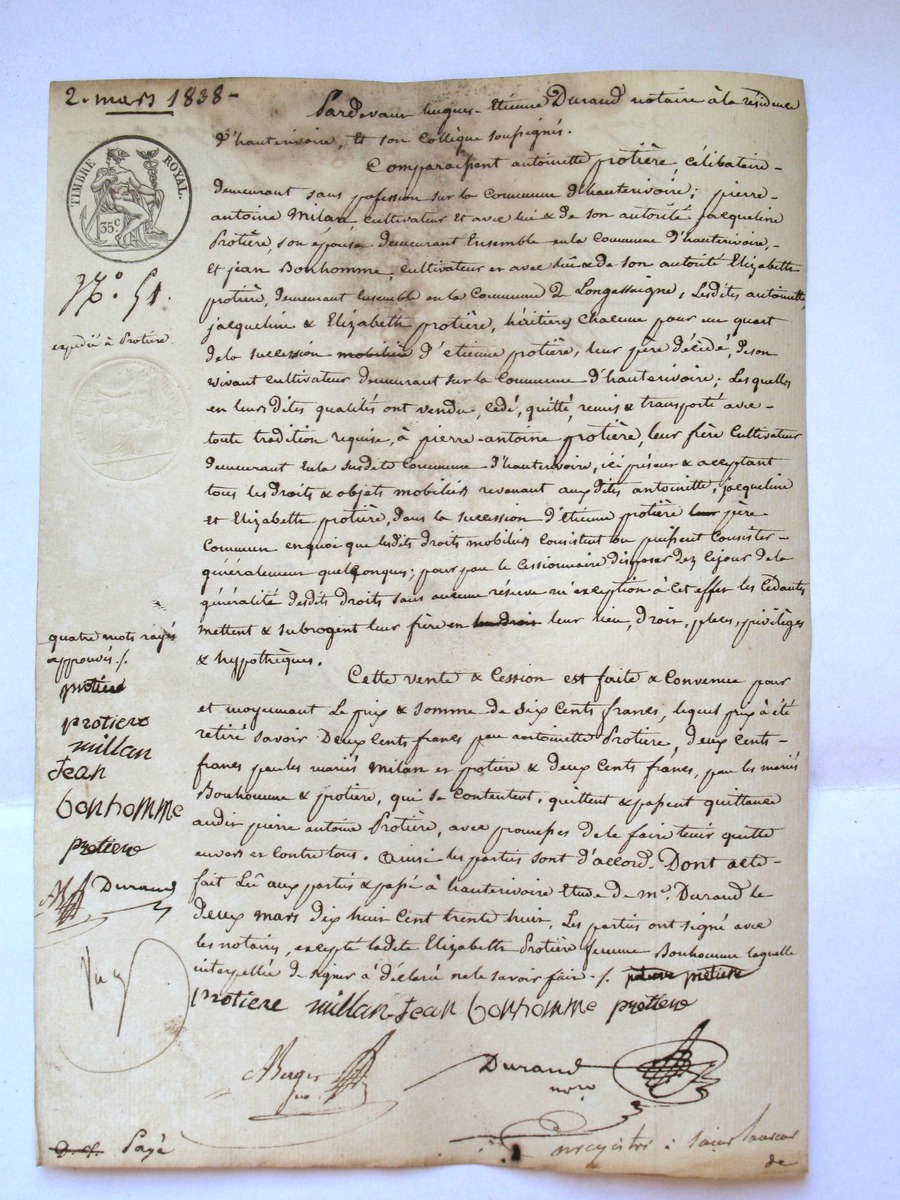 2. mars 1838 -
Pardevant hugues-Etienne Durand notaire à la résidence
d'hauterivoire, Et son Collègue soussignés.
TIMBRE ROYAL.
35c
Comparaissent antoinette protière, célibataire -
demeurant sans pofession sur la Commune d'hauterivoire; pierre
antoine Milan, cultivateur et avec lui & de son autorité jacqueline
Protière, son épouse demeurant Ensemble en la Commune d'hauterivoire, -
Et jean Bonhomme, cultivateur et avec lui & de son autorité Elizabeth
protière, demeurant Ensemble en la Commune de Longessaigne, Lesdites antoinette,
N.º 51.
jacqueline & Elizabeth protière, héritières chacune pour un quart
expédié à Protière.
de la succession mobilière d'etienne protière, leur père décédé, de son
vivant cultivateur demeurant sur la Commune d'hauterivoire; Lesquelles
en leurs dites qualités ont vendu, cédé, quitté, remis & transporté avec -
toute tradition requise, à pierre-antoine protière, leur frère cultivateur
demeurant en la susdite Commune d'hauterivoire, ici présent & acceptant
tous les droits & objets mobiliers revenant auxdites antoinette, jacqueline
et Elizabeth protière, dans la sucession d'Etienne protière leur père
Commun en quoi que lesdits droits mobiliers Consistent ou puissent Consister -
généralement quelconques; pour par le Cessionnaire disposer dez cejour de la
généralité desdits droits sans aucune réserve ni exception à cet effet les Cédants
mettent & subrogent leur frère en leur lieu, droit, place, privilèges
& hypothèques.
quatre mots rayés
approuvés ./.
protiere
protiere
millan
Jean
bonhomme
protiere
Durand
Cette vente & Cession est faite & Convenue pour
et moyennant Le prix & somme de Six Cents francs, lequel prix à été
retiré savoir Deux Cents francs par antoinette Protiere, deux Cents -
francs par les mariés Milan et protière & deux Cents francs, par les mariés
Bonhomme & protière, qui se Contentent, quittent & passent quittance
audit pierre antoine Protière, avec promesses de le faire tenir quitte
envers et contre tous. Ainsi les parties sont d'accord. Dont acte -
fait Lû aux parties & passé à hauterivoire Etude de Me. Durand le
deux mars dix huit Cent trente huit, Les parties ont signé avec
les notaires, excepté ladite Elizabeth Protière femme Bonhomme laquelle
interpellée de signer à déclaré ne le savoir faire ./. protiere
protiere millan Jean bonhomme protiere
Berger
Durand
nore
Payé
enregistré à Saint Laurent
de